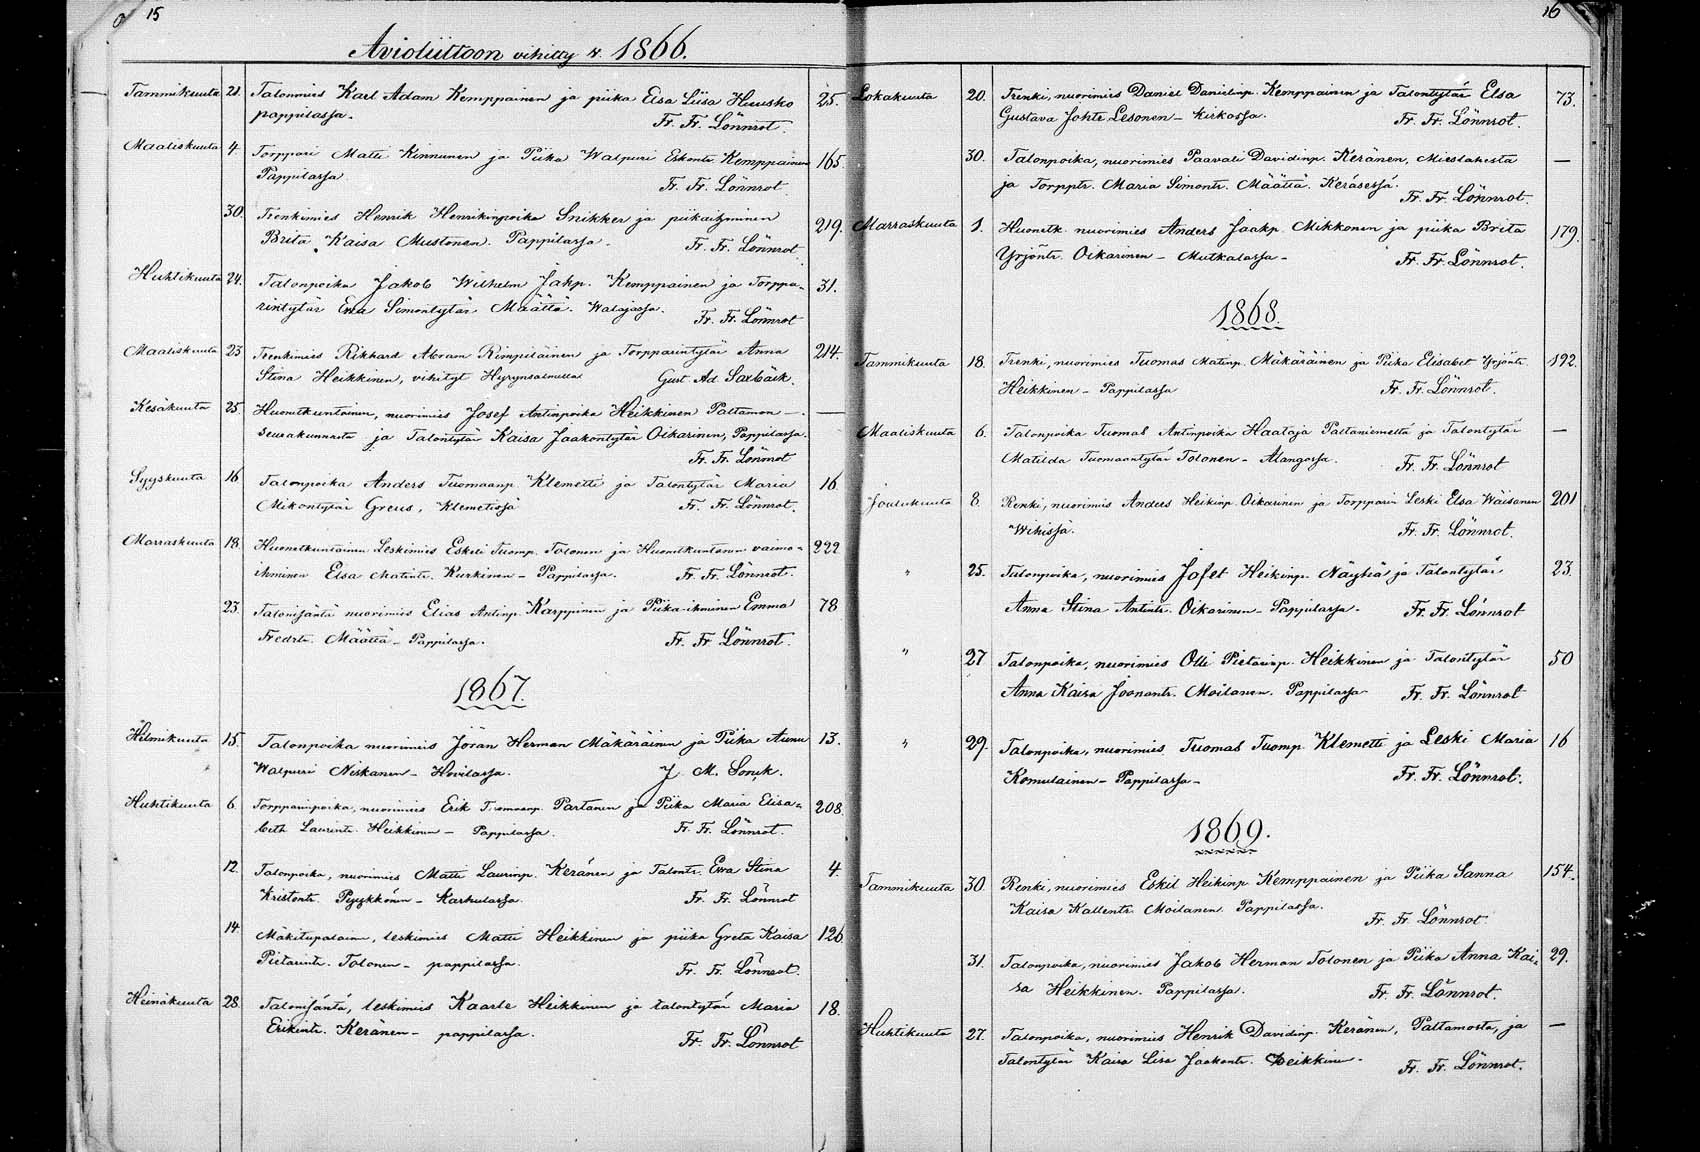 15
Avioliittoon vihitty v. 1866.
Tammikuuta 21. Talonmies Karl Adam Kemppainen ja piika Elsa Liisa Huusko 25.
pappilassa. Fr. Fr. Lönnrot.
Maaliskuuta 4. Torppari Matti Kinnunen ja Piika Walpuri Eskontr. Kemppainen 165.
Pappilassa. Fr. Fr. Lönnrot.
30. Trenkimies Henrik Henrikinpoika Snikker ja piikaihminen 219.
Brita Kaisa Mustonen. Pappilassa. Fr. Fr. Lönnrot.
Huhtikuuta 24. Talonpoika Jakob Wilhelm Jahp. Kemppainen ja Torppa- 31.
rintytär Ewa Simontytär Määttä. Fr. Fr. Lönnrot
Maaliskuuta 23 Trenkimies Rikhard Abram Rimpiläinen ja Torpparintytär Anna 214.
Stina Heikkinen, vihityt Hyrynsalmella Gust. Ad. Saxbäck.
Kesäkuuta 25. Huonetkuntainen, nuorimies Josef Antinpoika Heikkinen Paltamon —
seurakunnasta ja Talontytär Kaisa Jaakontytär Oikarinen, Pappilassa.
Fr. Fr. Lönnrot
Syyskuuta 16 Talonpoika Anders Tuomaanp. Klemetti ja Talontytär Maria 16
Mikontytär Greus, Klemetissä Fr. Fr. Lönnrot.
Marraskuuta 18. Huonetkuntainen Leskimies Eskeli Tuomp. Tolonen ja Huonetkuntainen vaimo- 222.
ihminen Elsa Matintr. Kurkinen – Pappilassa. Fr. Fr. Lönnrot.
23. Talonisäntä nuorimies Elias Antinp. Karppinen ja Piika-ihminen Emma 78
Fredrtr. Määttä – Pappilassa. Fr. Fr. Lönnrot.
1867.
Helmikuuta 15. Talonpoika nuorimies Jöran Herman Mäkäräinen ja Piika Aunu 13.
Walpuri Niskanen – Hovilassa. J. M.
Huhtikuuta 6. Torpparinpoika, nuorimies Erik Tuomaanp. Partanen ja Piika Maria Elisa- 208.
beth Laurintr. Heikkinen – Pappilassa. Fr. Fr. Lönnrot.
12. Talonpoika, nuorimies Matti Laurinp. Keränen ja Talontr. Ewa Stina 4.
Kristontr. Pyykkönen – Karhulassa. Fr. Fr. Lönnrot
14 Mäkitupalainen, leskimies Matti Heikkinen ja piika Greta Kaisa 126
Pietarintr. Tolonen – pappilassa. Fr. Fr. Lönnrot.
Heinäkuuta 28. Talonisäntä, leskimies Kaarle Heikkinen ja talontytär Maria 18.
Erkintr. Keränen – pappilassa. Fr. Fr. Lönnrot
16
Lokakuuta 20. Trenki, nuorimies Daniel Danielinp. Kemppainen ja Talontytär Elsa 73.
Gustava Lesonen – kirkossa. Fr. Fr. Lönnrot.
30. Talonpoika, nuorimies Paavali Davidinp. Keränen, Mieslahesta —
ja Torpptr. Maria Simontr. Määttä. Keräsessä. Fr. Fr. Lönnrot.
Marraskuuta 1. Huonetk. nuorimies Anders Jaakp. Mikkonen ja piika Brita 179.
Yrjöntr. Oikarinen – Mutkalassa – Fr. Fr. Lönnrot.
1868.
Tammikuuta 18. Trenki, nuorimies Tuomas Matinp. Mäkäräinen ja Piika Elisabet Yrjöntr. 192.
Heikkinen – Pappilassa Fr. Fr. Lönnrot.
Maaliskuuta 6. Talonpoika Tuomas Antinpoika Haataja Paltaniemeltä ja Talontytär —
Matilda Tuomaantytär Tolonen – Alangossa. Fr. Fr. Lönnrot
Joulukuuta 8. Renki, nuorimies Anders Heikinp. Oikarinen ja Torpparin Leski Elsa Wäisänen 201
Fr. Fr. Lönnrot.
„ 25. Talonpoika, nuorimies Jafet Heikinp. Näyhiä ja Talontytär 23.
Anna Stina Antintr. Oikarinen – Pappilassa – Fr. Fr. Lönnrot
„ 27 Talonpoika, nuorimies Olli Pietarinp. Heikkinen ja Talontytär 50
Anna Kaisa Joonantr. Moilanen. Pappilassa Fr. Fr. Lönnrot
„ 29. Talonpoika, nuorimies Tuomas Tuomp. Klemetti ja Leski Maria 16
Komulainen – Pappilassa – Fr. Fr. Lönnrot.
1869.
Tammikuuta 30. Renki, nuorimies Eskil Heikinp. Kemppainen ja Piika Sanna 154.
Kaisa Kallentr. Moilanen. Pappilassa. Fr. Fr. Lönnrot
31. Talonpoika, nuorimies Jakob Herman Tolonen ja Piika Anna Kai- 29.
sa Heikkinen. Pappilassa. Fr. Fr. Lönnrot.
Huhtikuuta 27. Talonpoika, nuorimies Henrik Davidinp. Keränen, Paltamosta, ja —
Talontytär Kaisa Lisa Jaakontr. Heikkinen. Fr. Fr. Lönnrot.